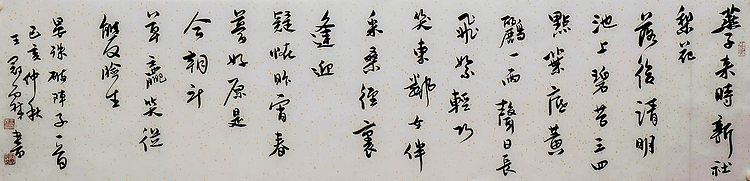 燕子来時新社
梨花
落後清明
池上碧苔三四
點葉底黄
鸝一兩聲日長
飛絮輕巧
笑東鄰女伴
采桑徑裏
逢迎
疑怪昨宵春
夢好原是
今朝斗
草贏笑從
雙臉生
晏殊破陣子一首
己亥仲秋
王 書